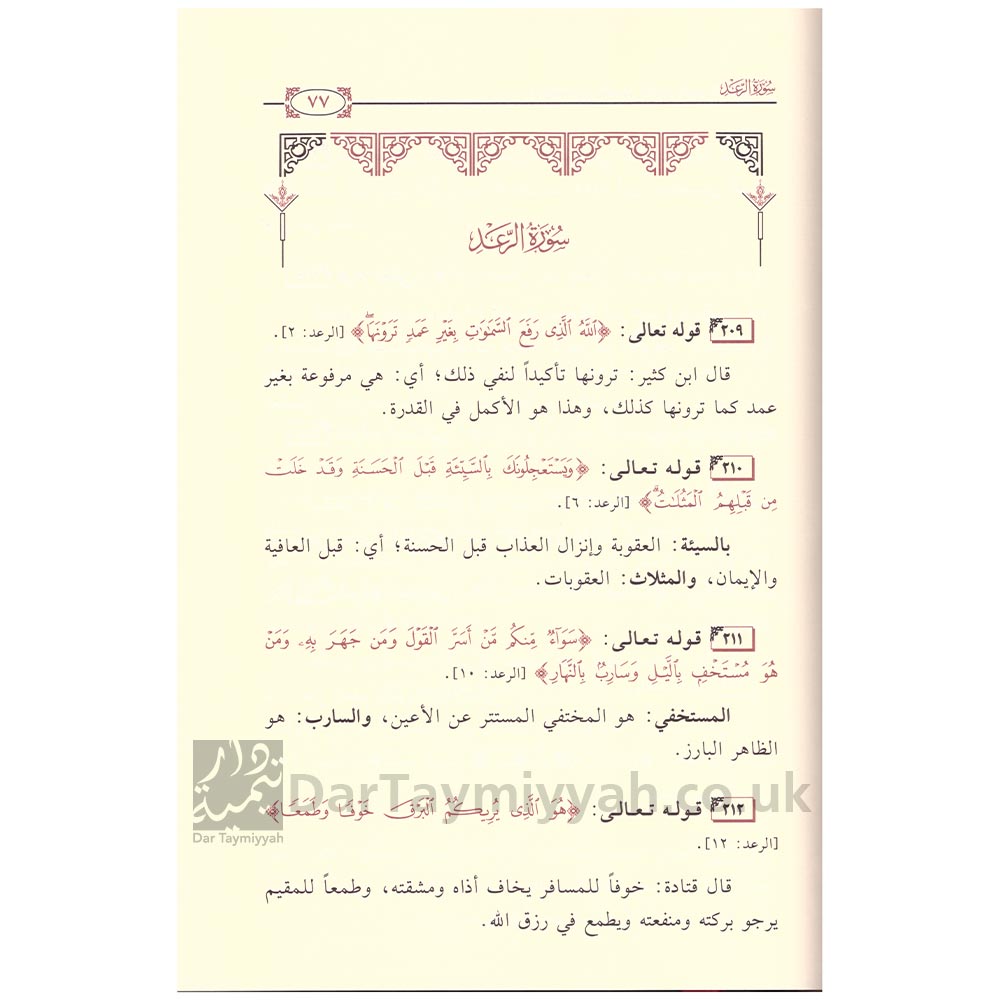 سُورَةُ الرَّعْدِ
٧٧
سُورَةُ الرَّعْدِ
٢٠٩ قوله تعالى: ﴿ٱللَّهُ ٱلَّذِى رَفَعَ ٱلسَّمَٰوَٰتِ بِغَيْرِ عَمَدٍ تَرَوْنَهَا ۖ﴾ [الرعد: ٢].
قال ابن كثير: ترونها تأكيداً لنفي ذلك؛ أي: هي مرفوعة بغير
عمد كما ترونها كذلك، وهذا هو الأكمل في القدرة.
٢١٠ قوله تعالى: ﴿وَيَسْتَعْجِلُونَكَ بِٱلسَّيِّئَةِ قَبْلَ ٱلْحَسَنَةِ وَقَدْ خَلَتْ
مِن قَبْلِهِمُ ٱلْمَثُلَٰتُ ۗ﴾ [الرعد: ٦].
بالسيئة: العقوبة وإنزال العذاب قبل الحسنة؛ أي: قبل العافية
والإيمان، والمثلاث: العقوبات.
٢١١ قوله تعالى: ﴿سَوَآءٌ مِّنكُم مَّنْ أَسَرَّ ٱلْقَوْلَ وَمَن جَهَرَ بِهِۦ وَمَنْ
هُوَ مُسْتَخْفٍۭ بِٱلَّيْلِ وَسَارِبٌۢ بِٱلنَّهَارِ﴾ [الرعد: ١٠].
المستخفي: هو المختفي المستتر عن الأعين، والسارب: هو
الظاهر البارز.
دار تيمية
Dar Taymiyyah
DarTaymiyyah.co.uk
٢١٢ قوله تعالى: ﴿هُوَ ٱلَّذِى يُرِيكُمُ ٱلْبَرْقَ خَوْفًا وَطَمَعًا﴾
[الرعد: ١٢].
قال قتادة: خوفاً للمسافر يخاف أذاه ومشقته، وطمعاً للمقيم
يرجو بركته ومنفعته ويطمع في رزق الله.